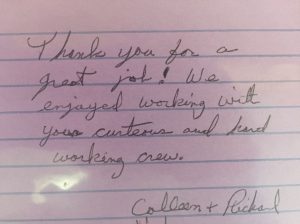 Thank you for a
great job! We
enjoyed working with
your curteous and hard
working crew.
Colleen + Richard